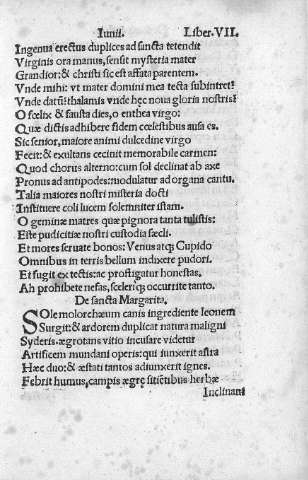 Iunii. Liber. VII.
Ingenua erectus duplices ad sancta tetendit
Virginis ora manus, sensit mysteria mater
Grandior: & christi sic est affata parentem.
Vnde mihi: vt mater domini mea tecta subintret?
Vnde datũ? thalamis vnde hęc noua gloria nostris?
O fœlix & fausta dies, o enthea virgo:
Quæ dictis adhibere fidem cœlestibus ausa es.
Sic senior, maiore animi dulcedine virgo
Fecit: & exultans cecinit memorabile carmen:
Quod chorus alterno: cum sol declinat ab axe
Pronus ad antipodes: modulatur ad organa cantu.
Talia maiores nostri misteria docti
Instituere coli lucem solemniter istam.
O geminæ matres quæ pignora tanta tulistis:
Este pudicitiæ nostri custodia sæcli.
Et mores seruate bonos: Venus atq; Cupido
Omnibus in terris bellum indixere pudori.
Et fugit ex tectis: ac prostigatur honestas.
Ah prohibete nefas, sceleriq; occurrite tanto.
De sancta Margarita.
SOle molorchæum canis ingrediente leonem
Surgit: & ardorem duplicat natura maligni
Syderis. ægrotans vitio incusare videtur
Artificem mundani operis: qui iunxerit astra
Hæc duo: & æstati tantos adiunxerit ignes.
Febrit humus, campis ægrę sitiẽtibus herbæ
Inclinant